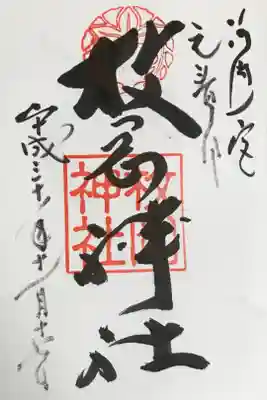 河内一宮
元春日
枚岡神社
枚岡神社
平成三十年十一月十六日